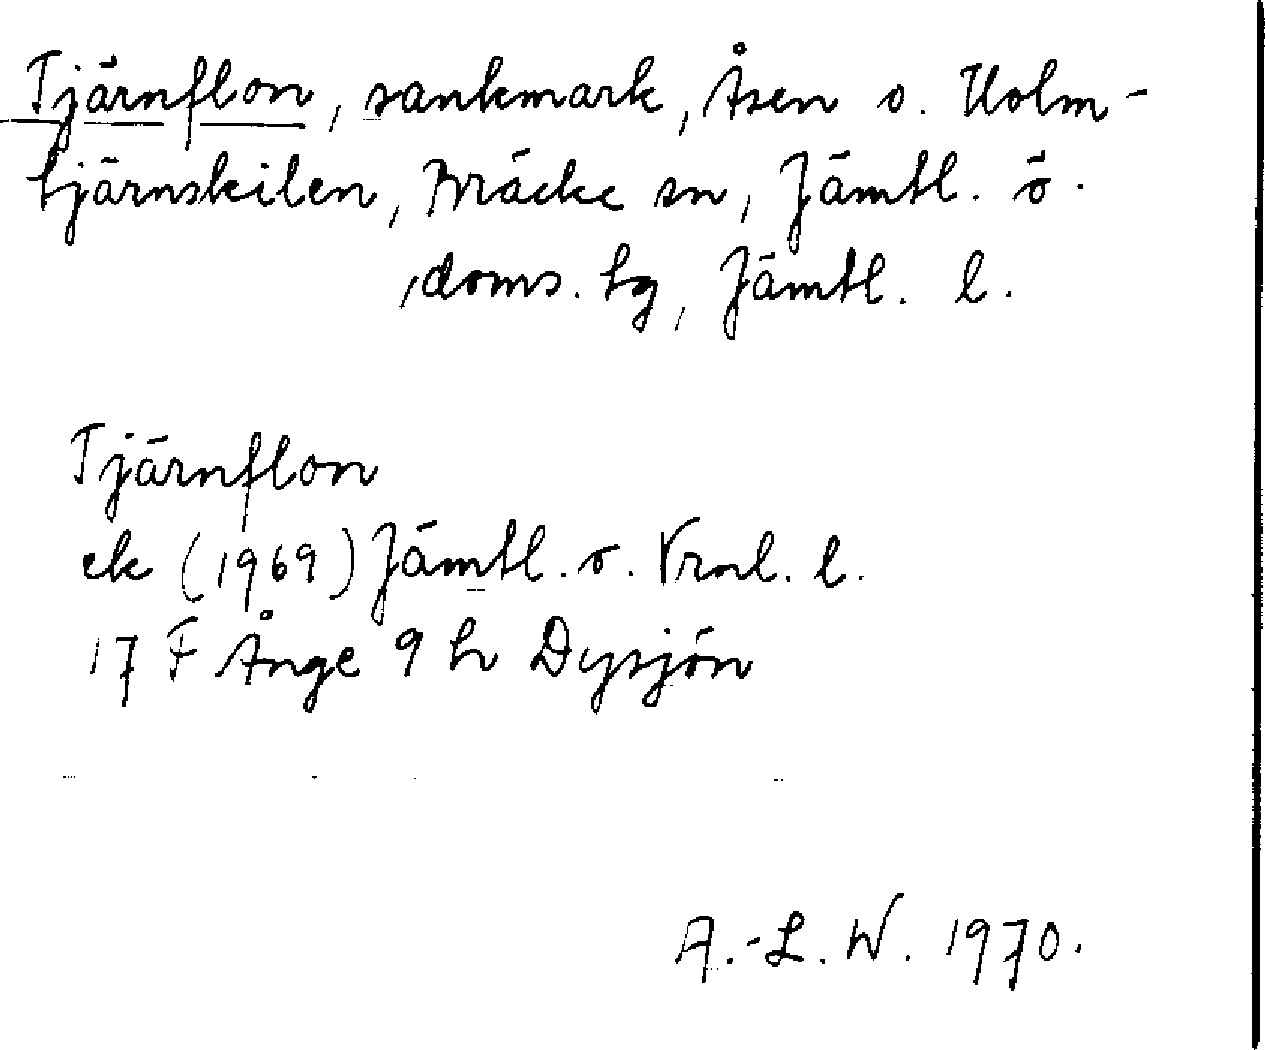 Tjärnflon, sankmark, Åsen o. Holm-
tjärnskilen, Bräcke sn, Jämtl. ö.
doms. tg, Jämtl. l.
Tjärnflon
ek (1969) Jämtl. o. Vrnl. l.
17 F Ånge 9 h Dysjön
A.-L. W. 1970.